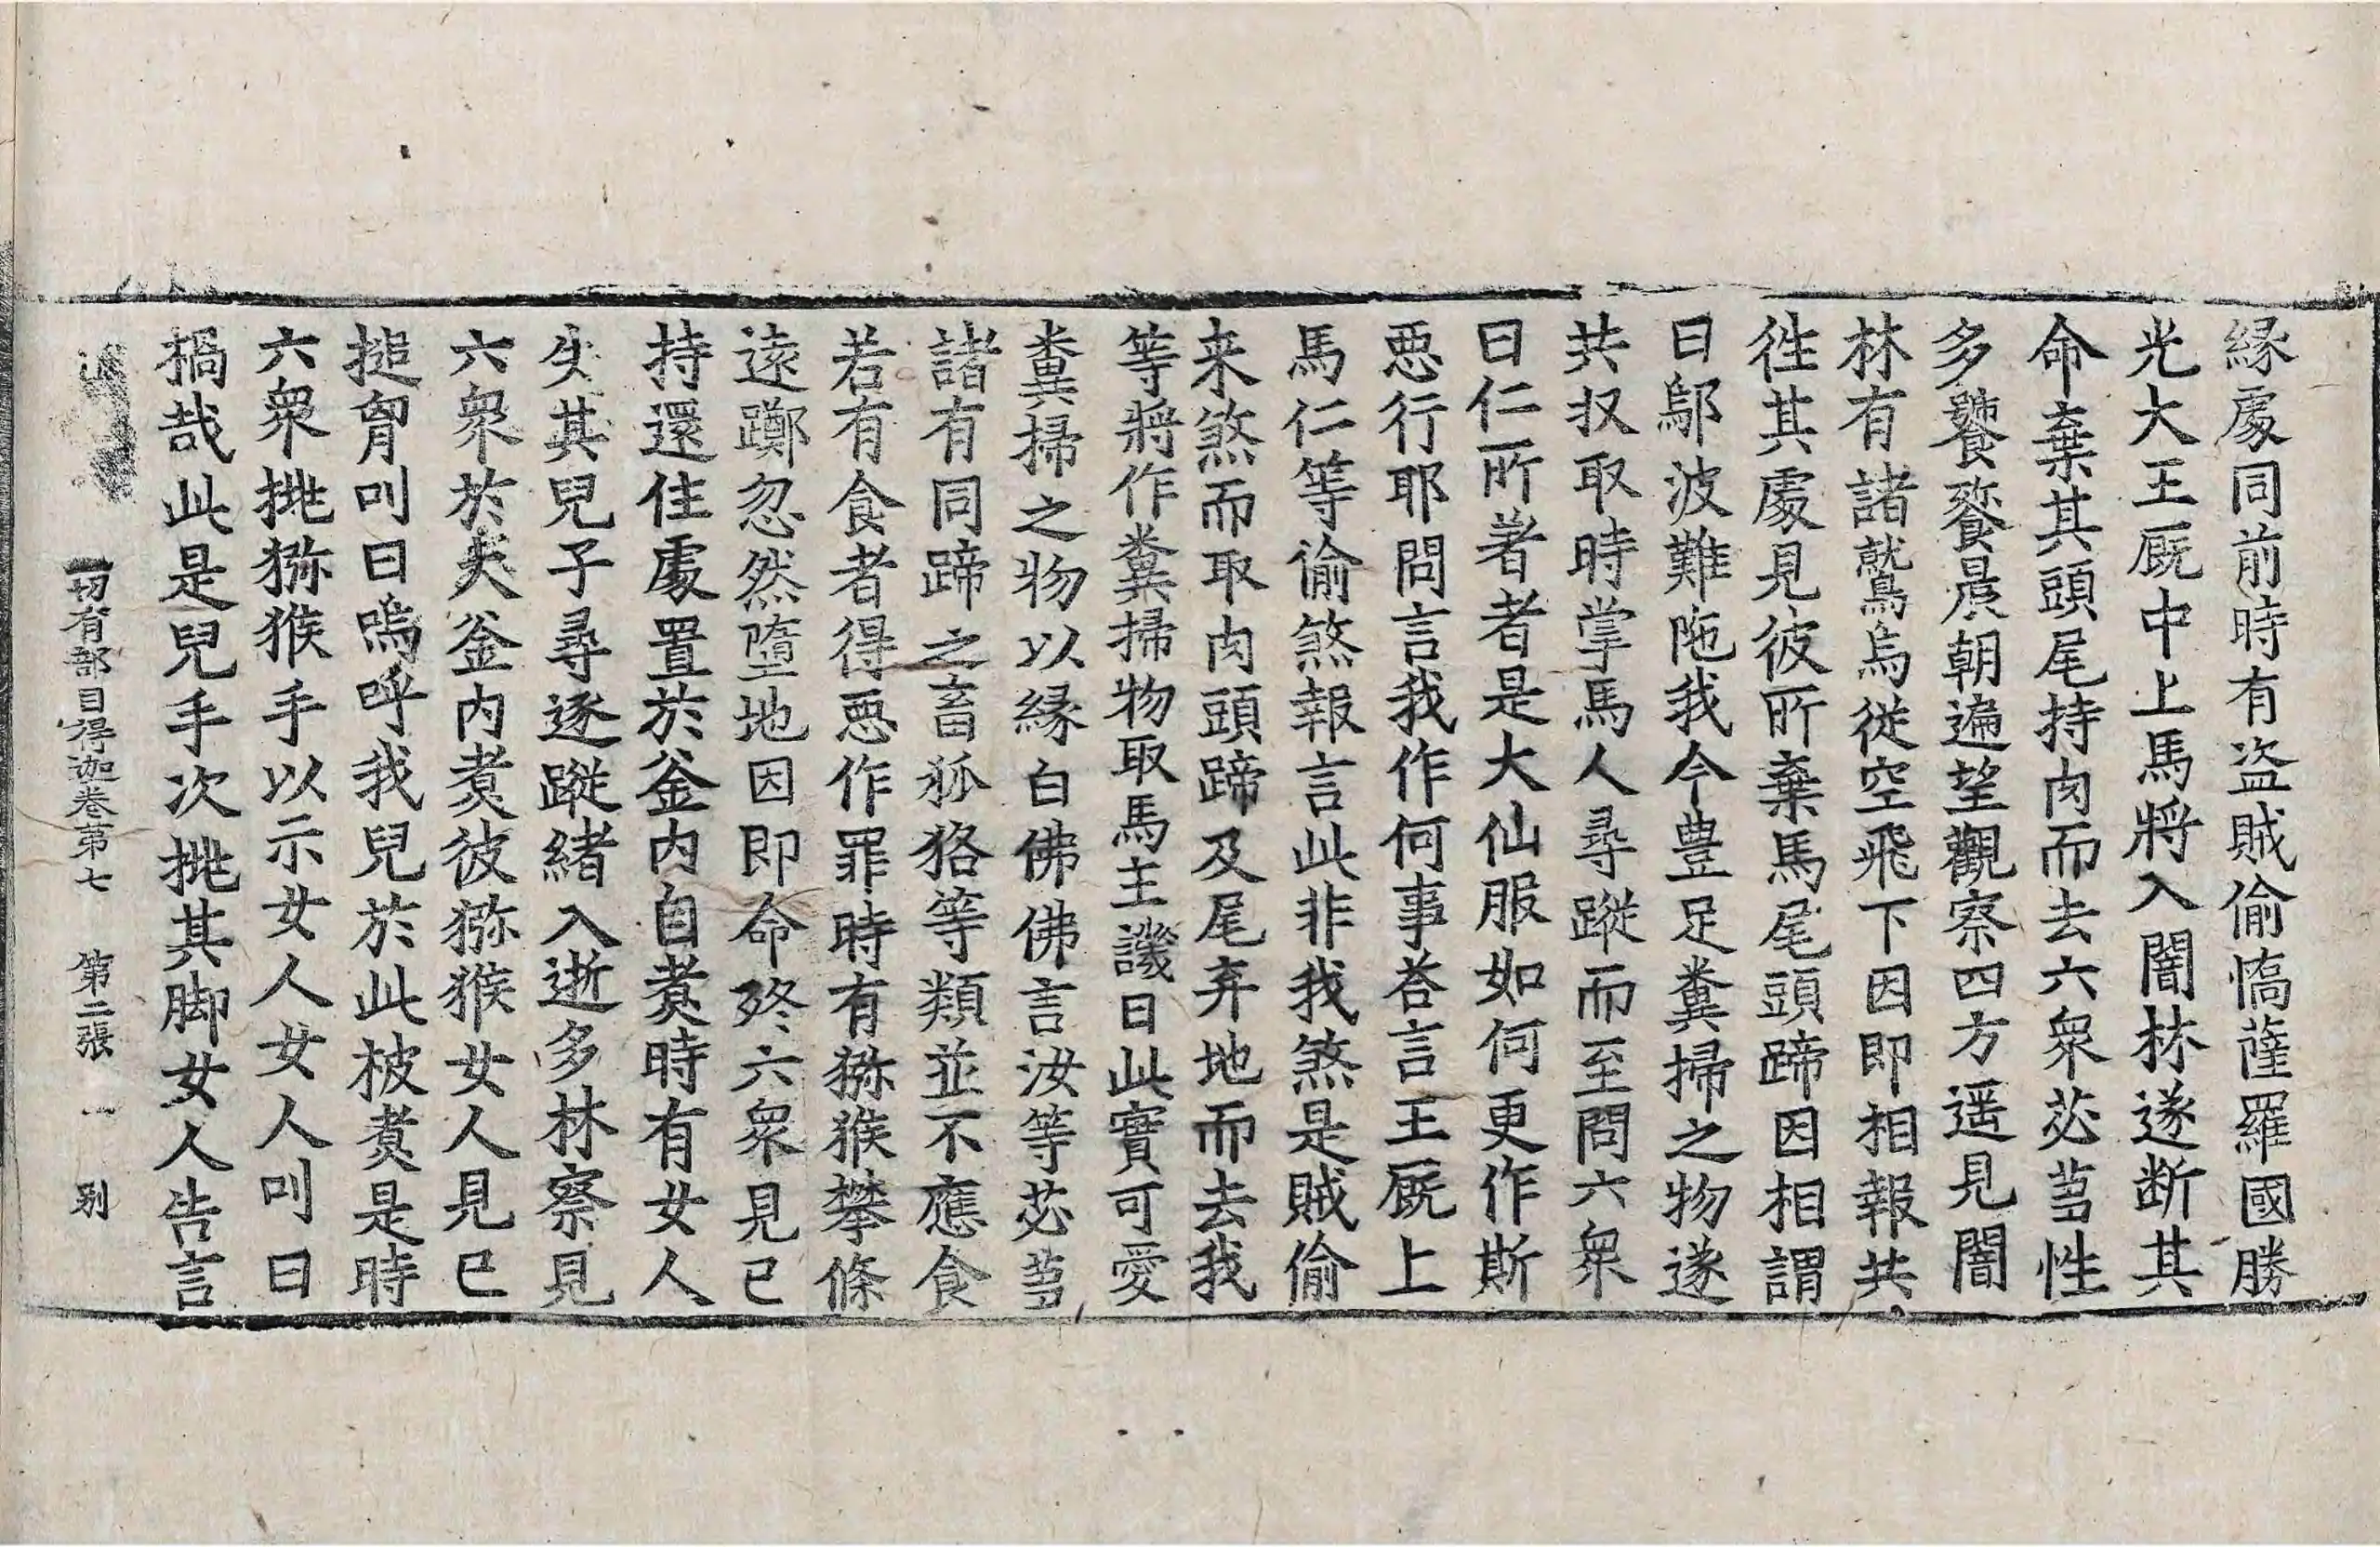 縁處同前時有盗賊偷憍薩羅國勝
光大王厩中上馬將入闇林遂断其
命棄其頭尾持肉而去六衆苾蒭性
多饕餮晨朝遍望觀察四方遥見闇
林有諸鷲烏從空飛下因即相報共
徃其處見彼所棄馬尾頭蹄因相謂
曰鄔波難陁我今豊足糞掃之物遂
共収取時掌馬人尋蹤而至問六衆
曰仁所著者是大仙服如何更作斯
悪行耶問言我作何事荅言王厩上
馬仁等偷煞報言此非我煞是賊偷
来煞而取肉頭蹄及尾弃地而去我
等將作糞掃物取馬主譏曰此實可愛
糞掃之物以縁白佛佛言汝等苾蒭
諸有同蹄之畜狐狢等類並不應食
若有食者得悪作罪時有猕猴攀條
遠躑忽然墮地因即命終六衆見已
持還住處置於釜内自煮時有女人
失其兒子尋逐蹤緒入逝多林察見
六衆於大釜内煮彼猕猴女人見已
搥胷叫曰嗚呼我兒於此被煮是時
六衆挑猕猴手以示女人女人叫曰
禍哉此是兒手次挑其脚女人告言
一切有部目得迦卷第七 第二張 別